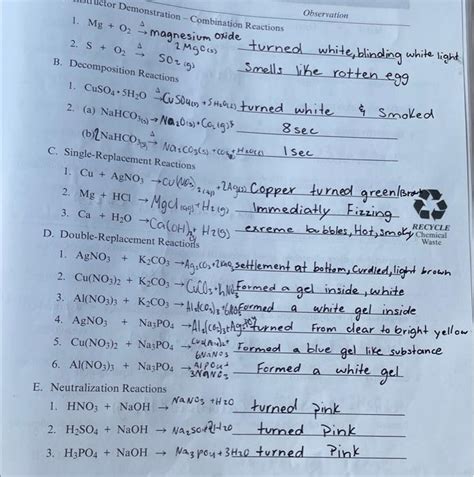 Instructor Demonstration – Combination Reactions Observation
1. Mg + O₂ →Δ magnesium oxide 2 MgO(s) turned white, blinding white light
2. S + O₂ →Δ SO₂(g) Smells like rotten egg
B. Decomposition Reactions
1. CuSO₄•5H₂O →Δ CuSO₄(s) + 5H₂O(g) turned white & Smoked
2. (a) NaHCO₃(s) → Na₂O(s) + CO₂(g) 8 sec
(b) 2NaHCO₃(s) →Δ Na₂CO₃(s) + CO₂ + H₂O(g) 1 sec
C. Single-Replacement Reactions
1. Cu + AgNO₃ → Cu(NO₃)₂(aq) + 2Ag(s) Copper turned green/Brown
2. Mg + HCl → MgCl(aq) + H₂(g) Immediatly Fizzing
3. Ca + H₂O → Ca(OH)₂ + H₂(g) exreme bubbles, Hot, smoky
RECYCLE
Chemical
Waste
D. Double-Replacement Reactions
1. AgNO₃ + K₂CO₃ → Ag₂CO₃ + 2KNO₃ settlement at bottom, Curdled, light brown
2. Cu(NO₃)₂ + K₂CO₃ → CuCO₃ + Formed a gel inside, white
3. Al(NO₃)₃ + K₂CO₃ → Formed a white gel inside
4. AgNO₃ + Na₃PO₄ → turned From clear to bright yellow
5. Cu(NO₃)₂ + Na₃PO₄ → 6NaNO₃ Formed a blue gel like substance
6. Al(NO₃)₃ + Na₃PO₄ → AlPO₄ + 3NaNO₃ Formed a white gel
E. Neutralization Reactions
1. HNO₃ + NaOH → NaNO₃ + H₂O turned pink
2. H₂SO₄ + NaOH → Na₂SO₄ + 2H₂O turned Pink
3. H₃PO₄ + NaOH → Na₃PO₄ + 3H₂O turned Pink